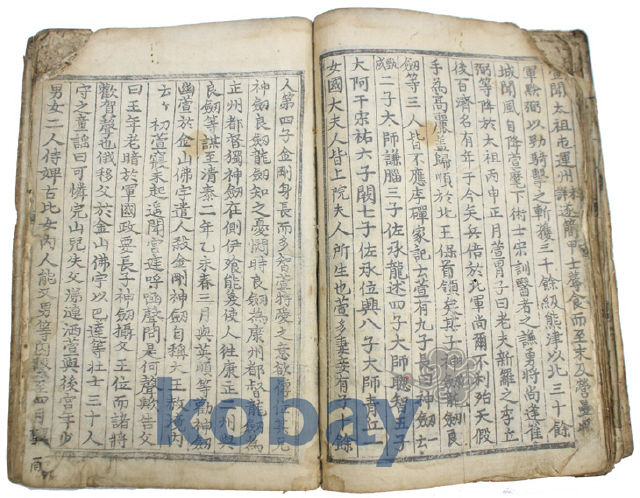 萱聞太祖屯運州詳遂簡甲士蓐食而至未及營壘將
軍黔弼以勁騎擊之斬獲三千餘級熊津以北三十餘
城聞風自降萱麾下術士宗訓醫者之謙勇將尚逢雀
弼等降於太祖丙申正月萱謂子曰老夫新羅之季立
後百濟名有年于今矣兵倍於北軍尚爾不利殆天假
手爲高麗盖歸順於北王保首領矣其子神劒龍劒良
劒等三人皆不應李磾家記云萱有九子長曰神劒二云
甄成
二子大師謙腦三子佐承龍述四子大師聰智五子
大阿干宗祐六子闕七子佐承位興八子大師青丘
女國大夫人皆上院夫人所生也萱多妻妾有子餘
人第四子金剛身長而多智萱特愛之意欲傳位其兄
神劒良劒龍劒知之憂悶時良劒爲康州都督龍劒爲
正州都督獨神劒在側伊飡能奐使人往康正二州與
良劒等謀至清泰二年乙未春三月與英順等勸神劒
幽萱於金山佛宇遣人殺金剛神劒自稱大王赦境內
云々初萱寢未起遙聞宮庭呼喊聲問是何聲歟告父
曰王年老暗於軍國政要長子神劒攝父王位而諸將
歡賀聲也俄移父於金山佛宇以巴達等壯士三十人
守之童謠曰可憐完山兒失父涕連洒萱與後宮年少
男女二人侍婢古比女內人能乂男等囚至四月
kobay